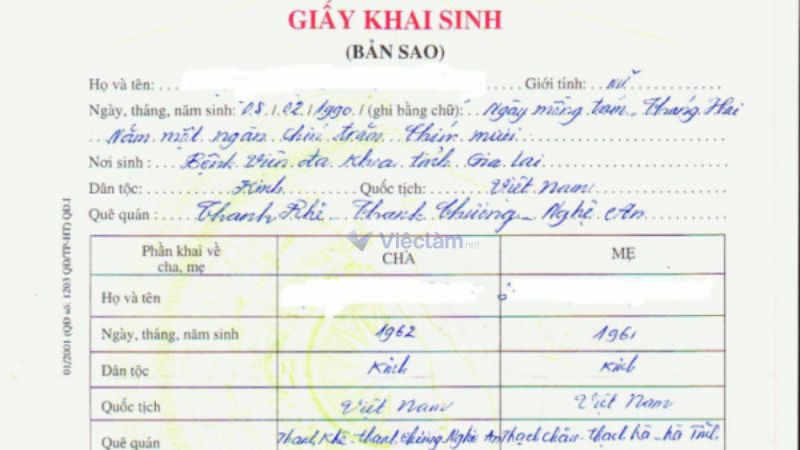 GIẤY KHAI SINH
(BẢN SAO)
Họ và tên: Giới tính: Nữ
Ngày, tháng, năm sinh: 08 / 02 / 1990 / (ghi bằng chữ): Ngày mồng tám, Tháng Hai
Năm một ngàn chín trăm chín mươi
Nơi sinh : Bệnh viện đa khoa tỉnh Gia Lai
Dân tộc: Kinh Quốc tịch: Việt Nam
Quê quán: Thanh Khê - Thanh Chương - Nghệ An
Phần khai về cha, mẹ CHA MẸ
Việclàm.net
Họ và tên
Ngày, tháng, năm sinh 1962 1961
Dân tộc Kinh Kinh
Quốc tịch Việt Nam Việt Nam
Quê quán Thanh Khê - Thanh Chương Nghệ An Thạch Châu - Thạch Hà - Hà Tĩnh
01/2001 (QĐ số: 1203 QĐ/TP-HT) QĐ.1